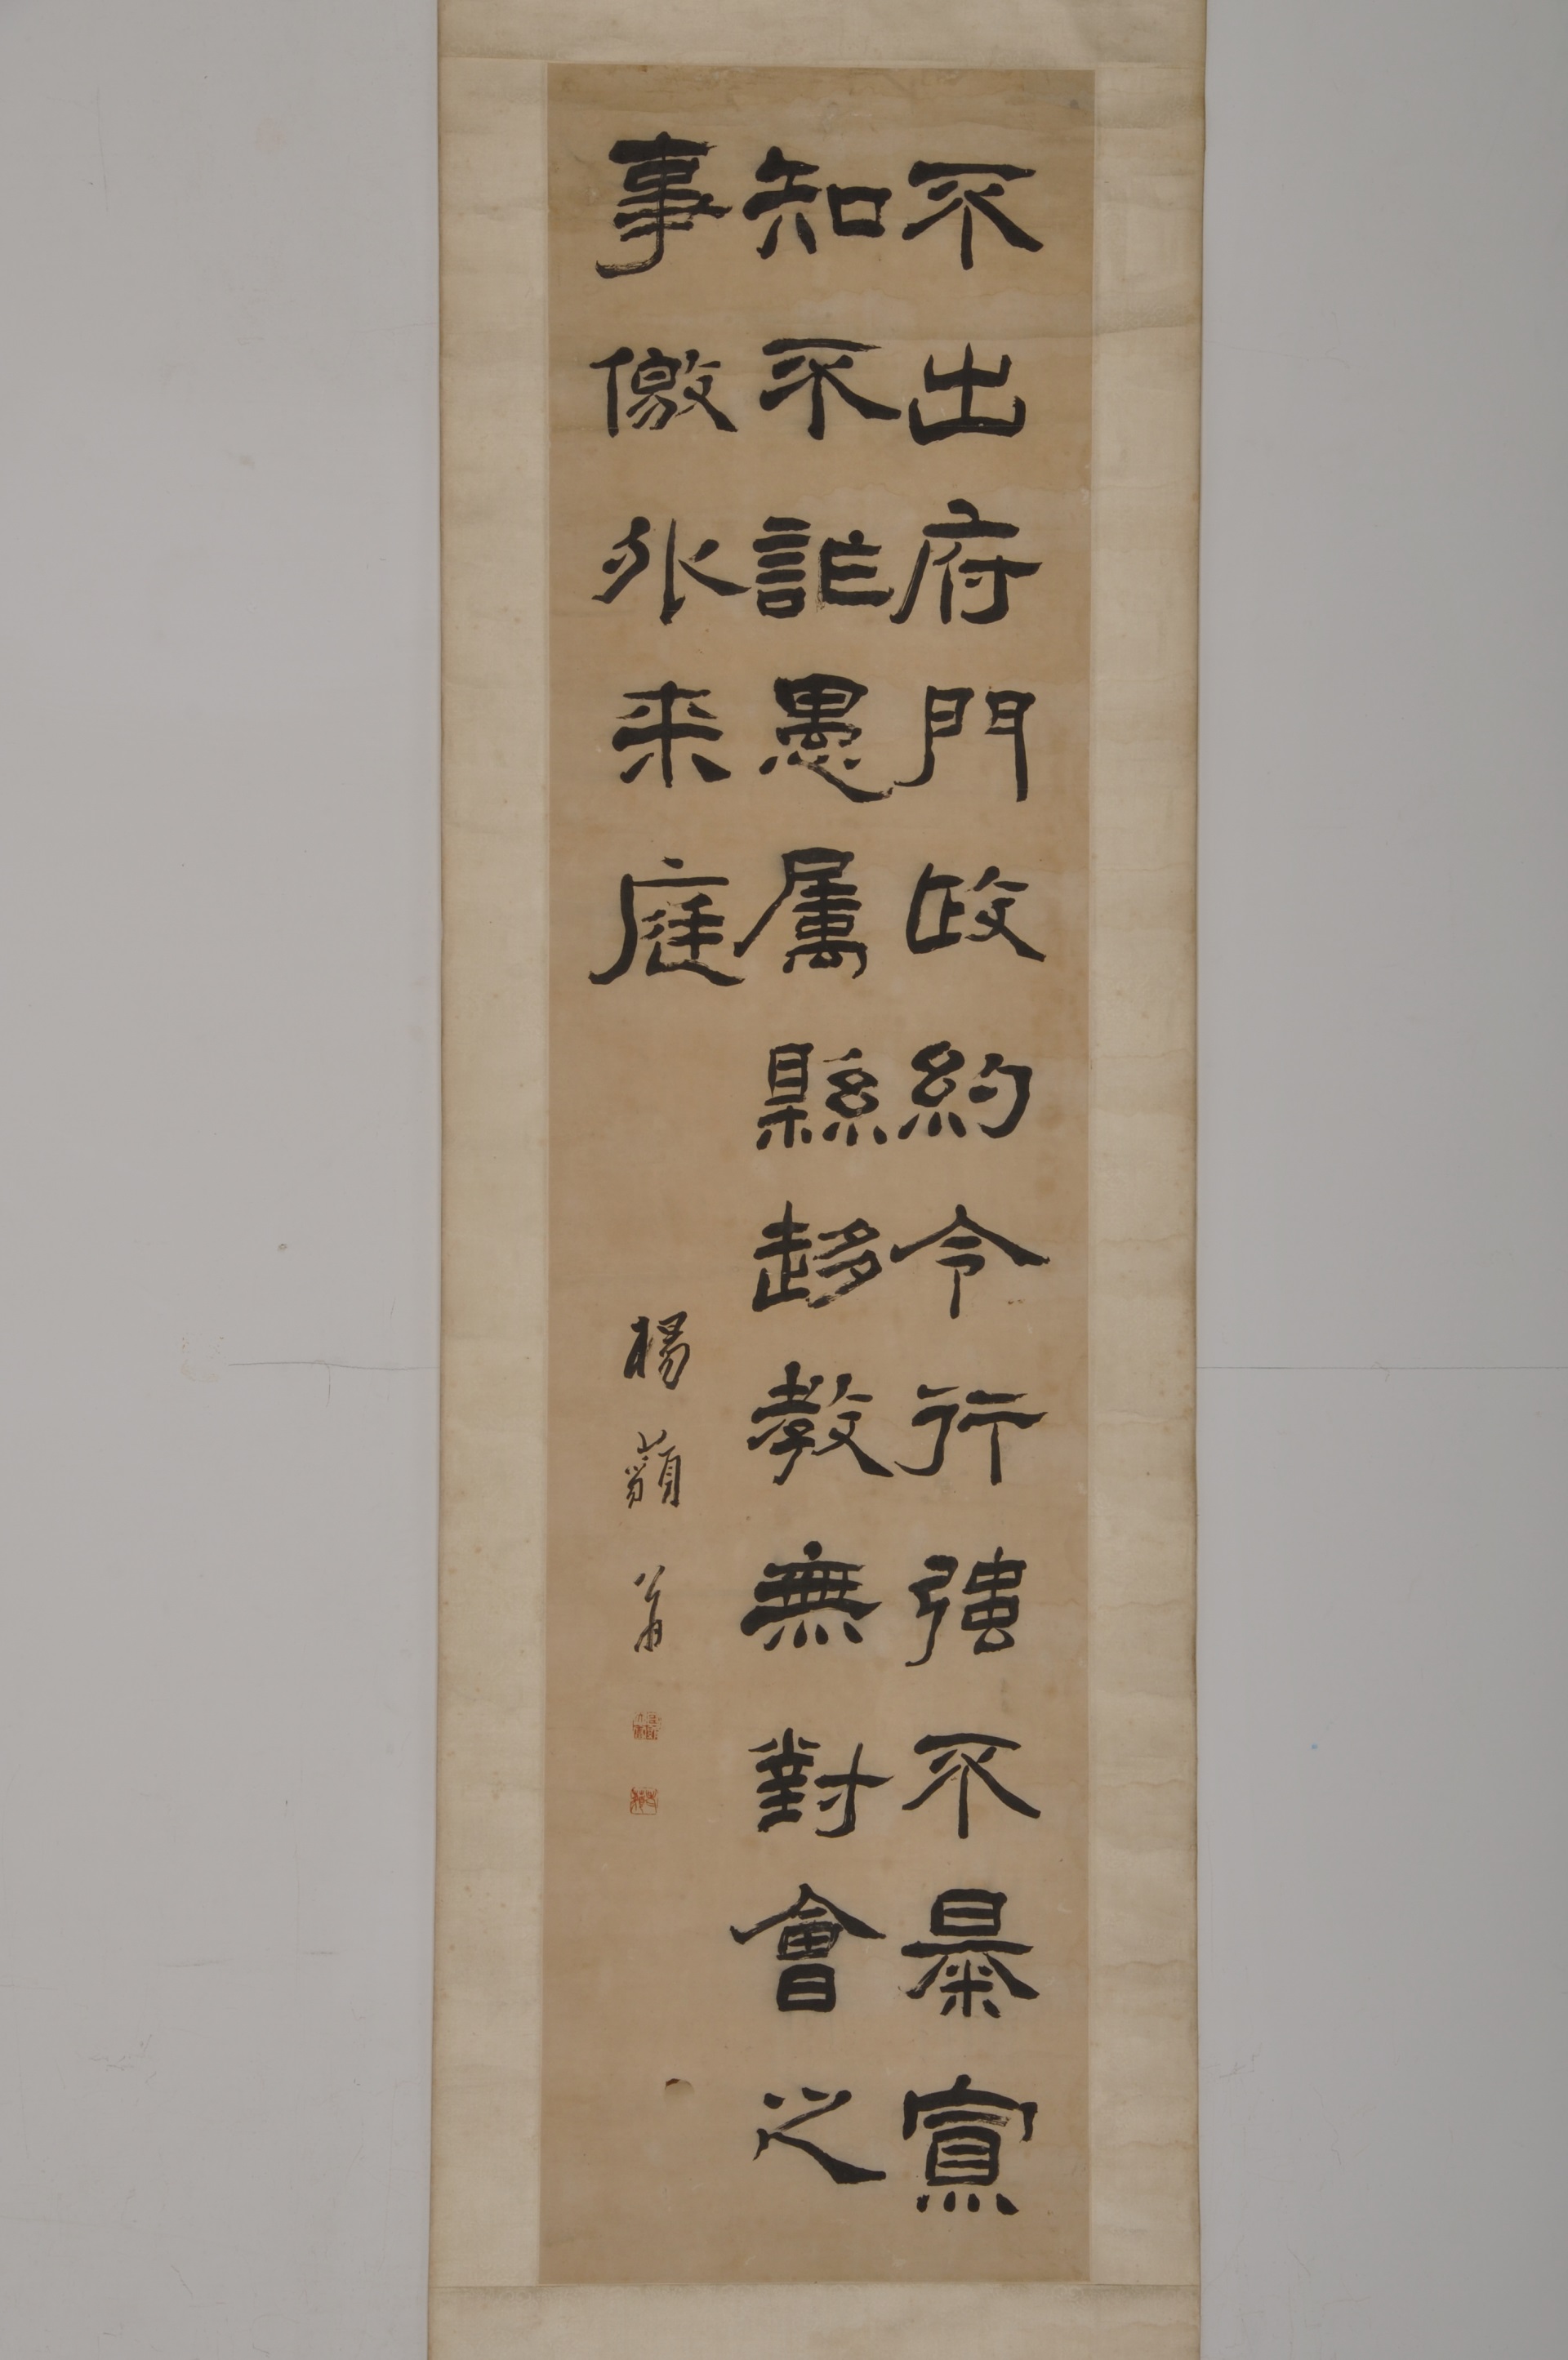 不出府門政約令行強不暴寡
知不詐愚属縣趍教無對會之
事徼外来庭
楊峴翁